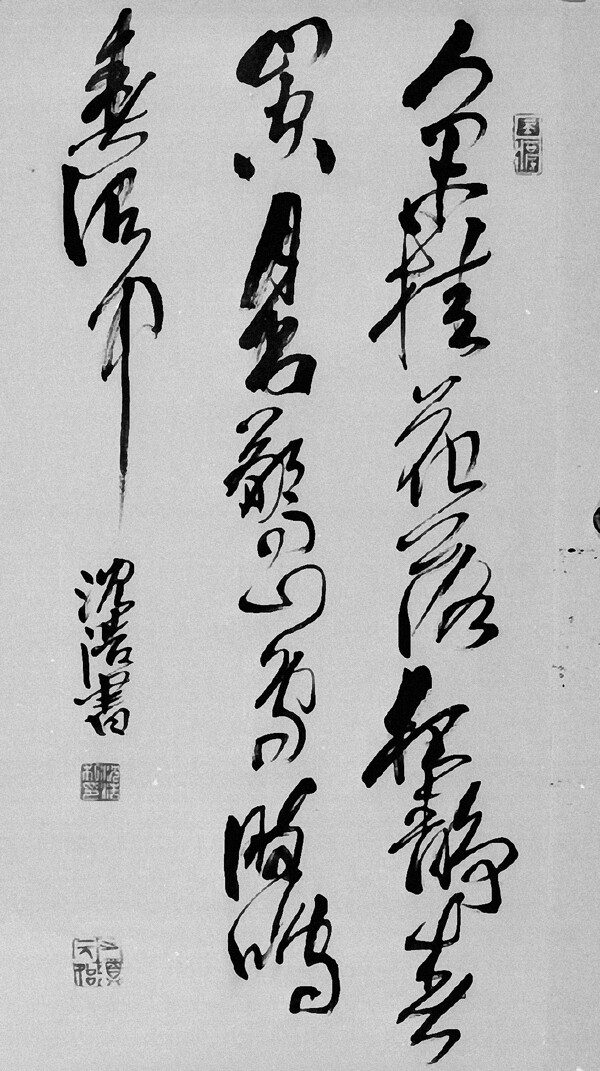 人閒桂花落夜静春
山空月出驚山鳥時鳴
春澗中
沈浩書